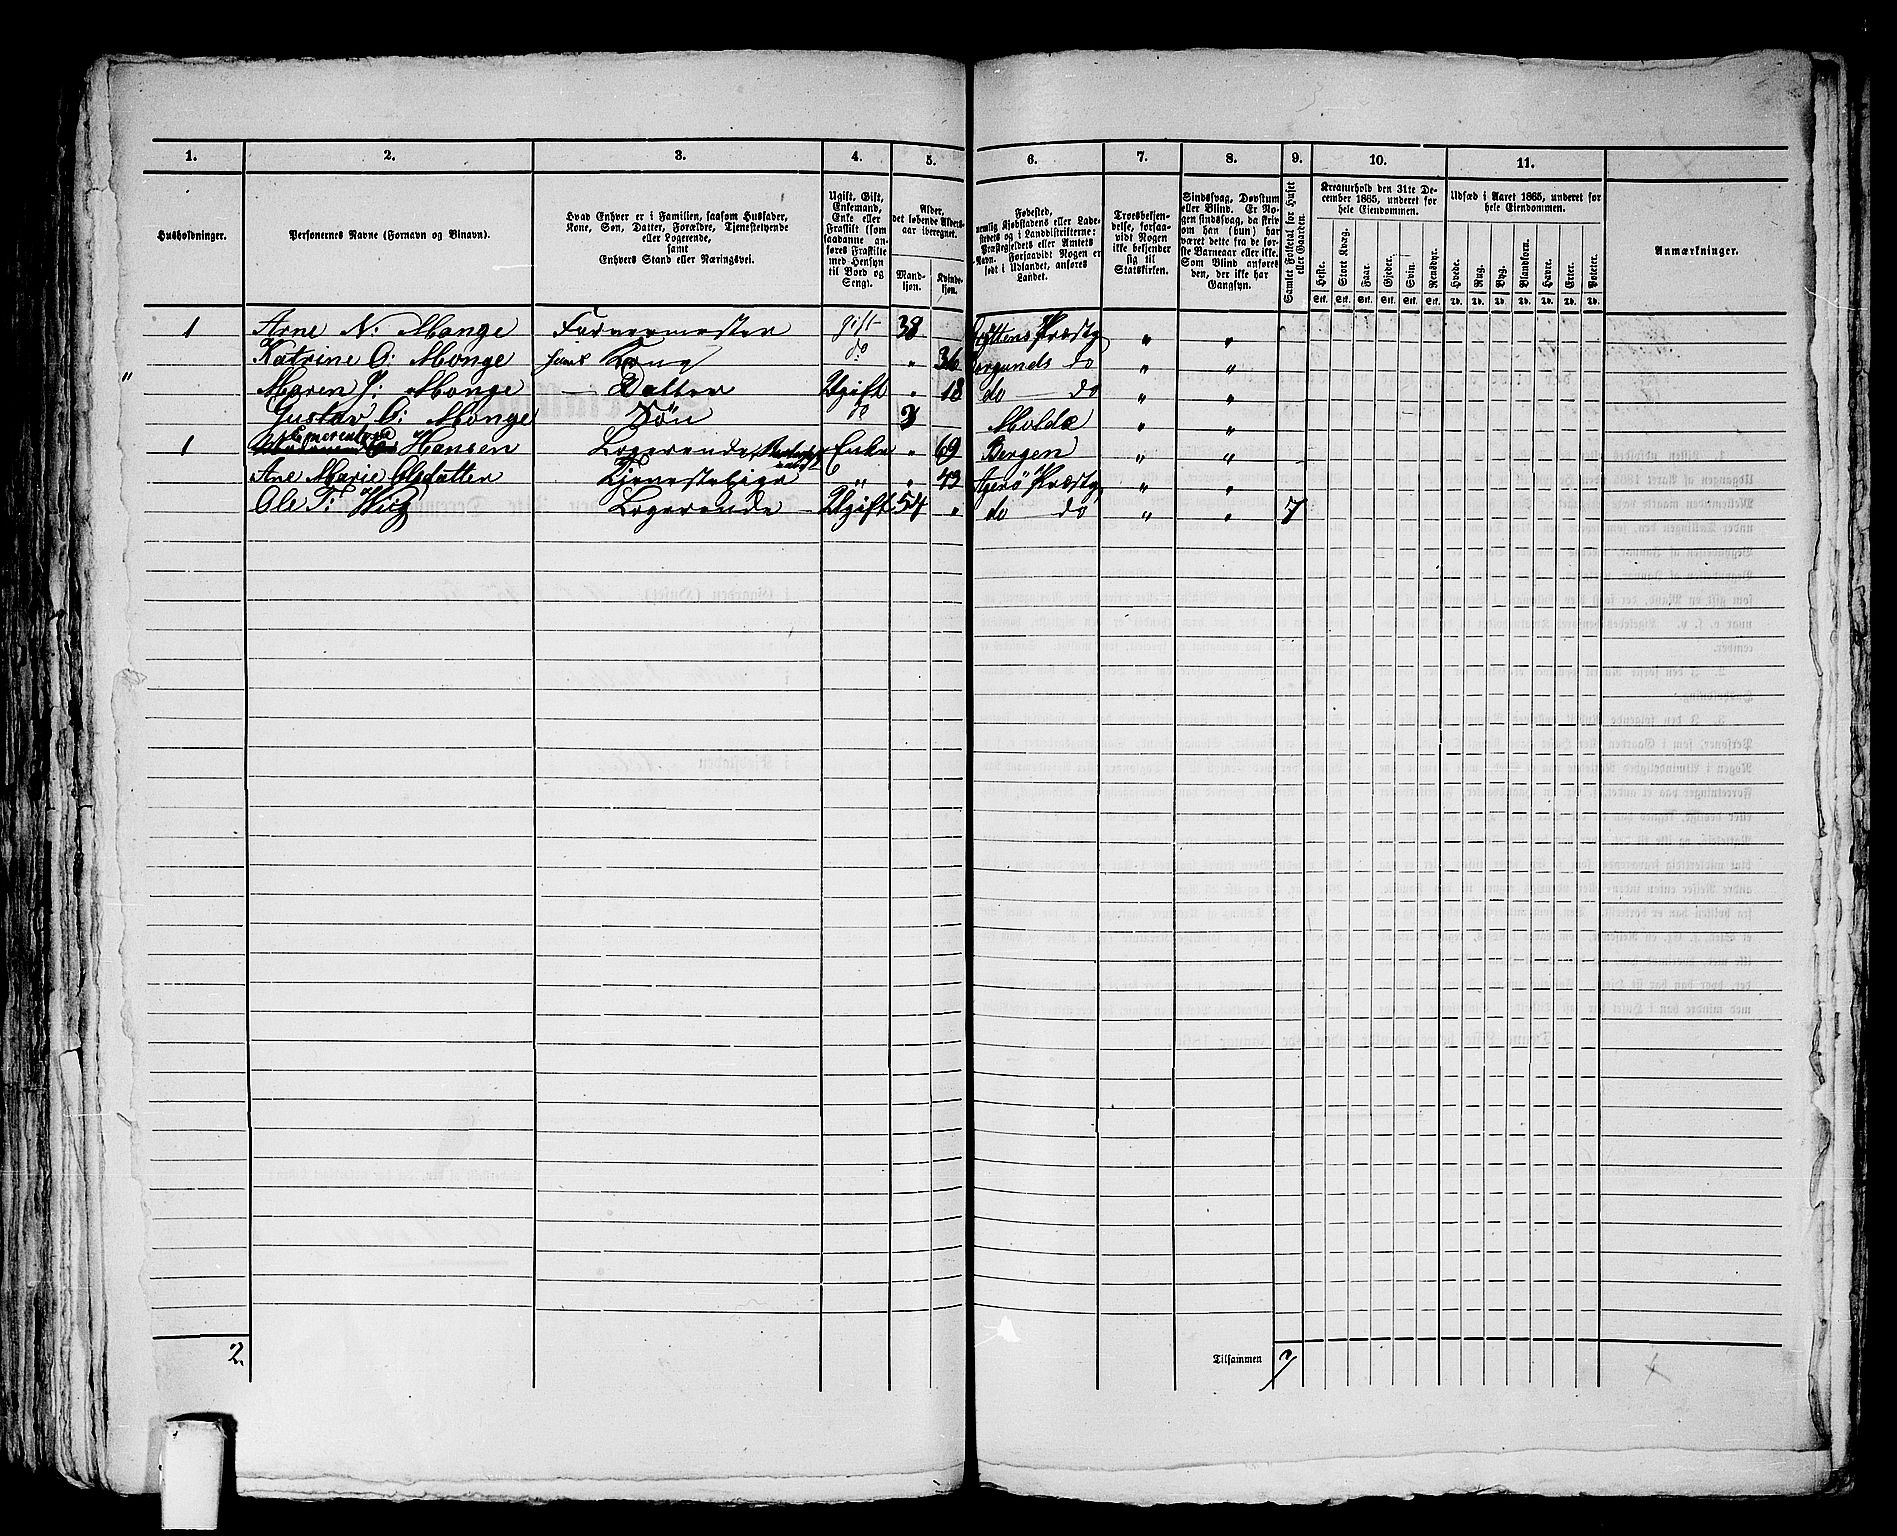 1. 2. 3. 4. 5. 6. 7. 8. 9. 10. 11.
Husholdninger.
Personernes Navne (Fornavn og Binavn).
Hvad Enhver er i Familien, saasom Husfader,
Kone, Søn, Datter, Forældre, Tjenestetyende
eller Logerende,
samt
Enhvers Stand eller Næringsvei.
Ugift, Gift,
Enkemand,
Enke eller
Fraskilt (som
saadanne an-
føres Fraskilte
med Hensyn
til Bord og
Seng).
Alder,
det løbende Alders-
aar iberegnet.
Mand-
kjøn.
Kvinde-
kjøn.
Fødested,
nemlig Kjøbstadens eller Lade-
stedets og i Landdistrikterne:
Præstegjeldets eller Amtets
Navn. Forsaavidt Nogen er
født i Udlandet, anføres
Landet.
Troesbekjen-
delse, forsaa-
vidt Nogen
ikke bekjender
sig til
Statskirken.
Sindssvag, Døvstum
eller Blind. Er No-
gen sindssvag, da skriv
om han (hun) har
været dette fra de før-
ste Barneaar eller ikke.
Som Blind ansøres
den, der ikke har
Gangsyn.
Samlet Folketal for Huset
eller Gaarden.
Kreaturhold den 31te De-
cember 1865, underet for
hele Eiendommen.
Heste. Stort Kvæg. Faar. Gjeder. Svin. Rensdyr.
Stk. Stk. Stk. Stk. Stk. Stk.
Udsæd i Aaret 1865, underet for
hele Eiendommen.
Hvede. Rug. Byg. Blandkorn. Havre. Erter. Poteter.
Td. Td. Td. Td. Td. Td. Td.
Anmærkninger.
1 Arne N. Monge Farvermester gift 38 Præstg " "
Katrine O: Monge hans Kone do " 36 Borgunds do " "
" Maren J: Monge — Datter Ugift " 18 do — do " "
Gustav A: Monge Søn do 3 Molde " "
1 Hansen Logerende Enke " 69 Bergen " "
Ane Marie Olsdatter Tjenestepige " " 43 Agerø Præstg " "
Ole T: Logerende Ugift 54 " do — do " " 7
2. Tilsammen 7